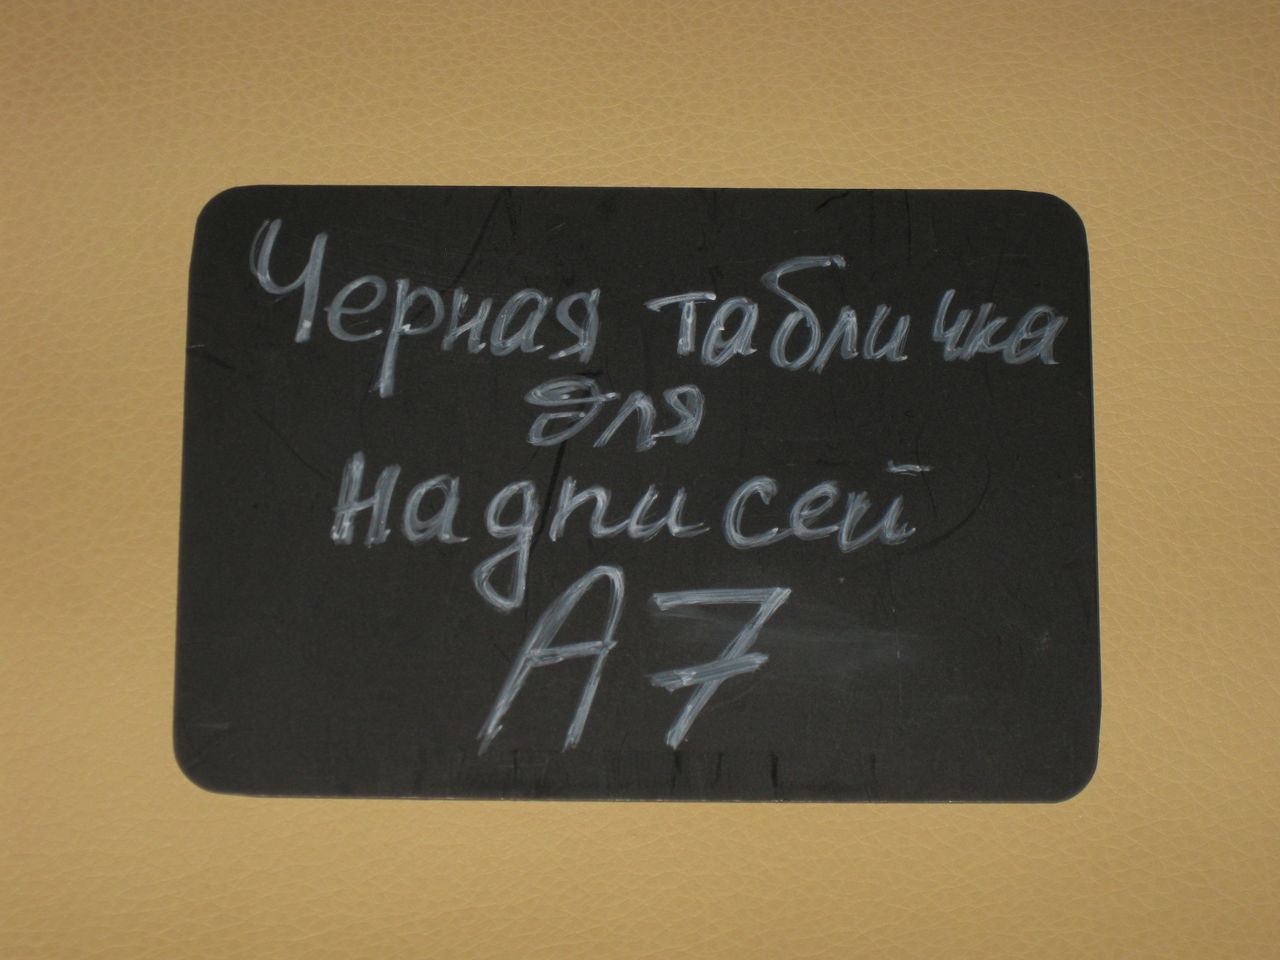 Черная табличка
для
надписей
А7